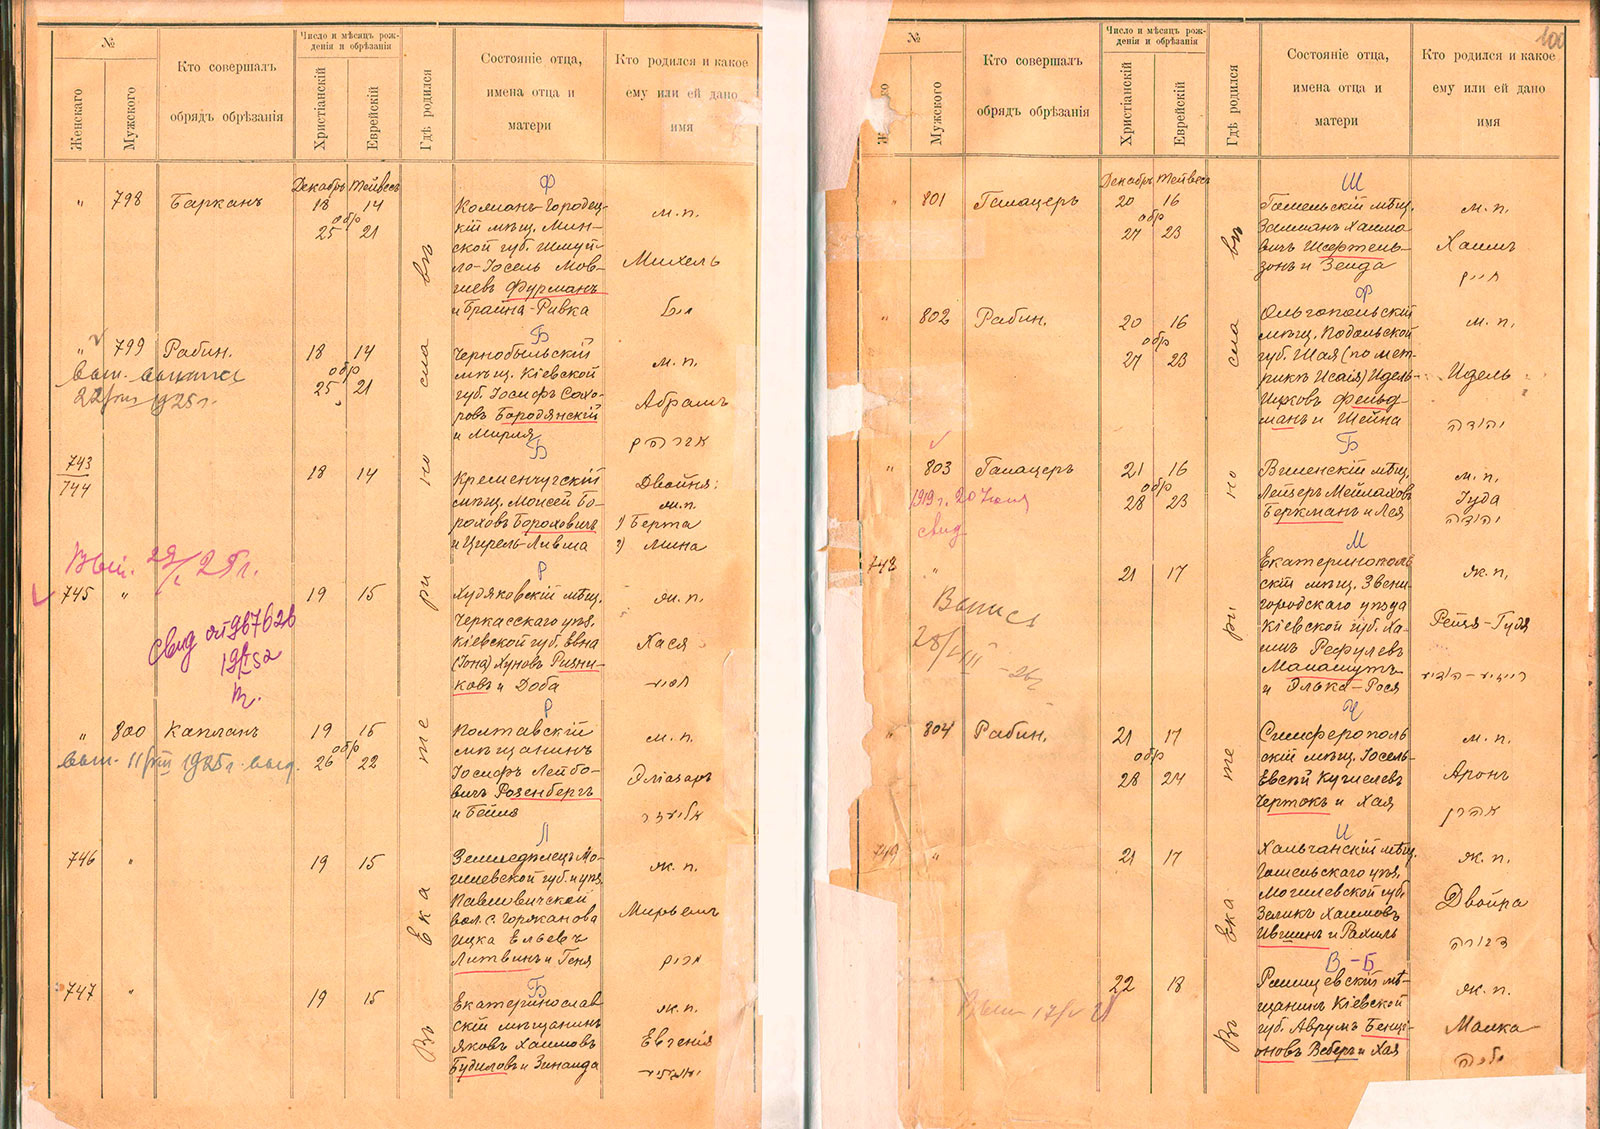 №
Женскаго
Мужского
Кто совершалъ
обрядъ обрѣзанія
Число и мѣсяцъ рож-
денія и обрѣзанія
Христіанскій
Еврейскій
Гдѣ родился
Состояніе отца,
имена отца и
матери
Кто родился и какое
ему или ей дано
имя
въ село при Екате
"
798
Барканъ
Декабрь Тейвесъ
18 14
обр
25 21
Ф
Кожанъ-Городец-
кій мѣщ. Мин-
ской губ. Шмуй-
ло-Іосель Мов-
шевъ Фурманъ
и Брайна-Ривка
м. п.
Михель
"
799
Рабин.
18 14
обр
25 21
Б
Чернобыльскій
мѣщ. Кіевской
губ. Іосифъ Сахо-
ровъ Бородянскій
и Мирля
м. п.
Абрамъ
743
744
18 14
Б
Кременчугскій
мѣщ. Моисей Бо-
роховъ Бороховичъ
и Цирель-Ливша
Двойня:
ж. п.
1) Берта
2) Мина
745
"
19 15
Р
Худяковскій мѣщ.
Черкасскаго уѣз.
Кіевской губ. Евна
(Іона) Хуновъ Ризни-
ковъ и Доба
ж. п.
Хася
חסיע
"
800
Капланъ
19 15
обр
26 22
Р
Полтавскій
мѣщанинъ
Іосифъ Лейбо-
вичъ Розенбергъ
и Бейля
м. п.
Эліазаръ
אליעזר
746
"
19 15
Л
Земледѣлецъ Мо-
гилевской губ. и уѣз.
Павловичской
вол. с. Горжанова
Ицка Ельевъ
Литвинъ и Геня
ж. п.
Мирьемъ
מרים
747
"
19 15
Б
Екатеринослав-
скій мѣщанинъ
Яковъ Хаимовъ
Будиловъ и Зинаида
ж. п.
Евгенія
100
№
Мужского
Кто совершалъ
обрядъ обрѣзанія
Число и мѣсяцъ рож-
денія и обрѣзанія
Христіанскій
Еврейскій
Гдѣ родился
Состояніе отца,
имена отца и
матери
Кто родился и какое
ему или ей дано
имя
"
801
Галацеръ
Декабрь Тейвесъ
20 16
обр
27 23
Ш
Гомельскій мѣщ.
Залманъ Хаимо-
вичъ Шертель-
зонъ и Зелда
м. п.
Хаимъ
חיים
"
802
Рабин.
20 16
обр
27 23
Ф
Ольгопольскій
мѣщ. Подольской
губ. Шая (по мет-
рикѣ Исаія) Идель-
Ицковъ Фельд-
манъ и Шейна
м. п.
Идель
יהודה
"
803
Галацеръ
1919 г. 20 Іюня
свид.
21 16
обр
28 23
Б
Виленскій мѣщ.
Лейзеръ Мейлаховъ
Беркманъ и Лея
м. п.
Іуда
יהודה
748
"
21 17
М
Екатеринополь
скій мѣщ. Звени-
городскаго уѣзда
Кіевской губ. Ха-
имъ Рефулевъ
Маламутъ
и Элька-Рося
ж. п.
Рейзя-Гудя
"
804
Рабин.
21 17
обр
28 24
Ч
Симферополь
скій мѣщ. Іосель-
Евсѣй Кушелевъ
Чертокъ и Хая
м. п.
Аронъ
אהרן
749
"
21 17
И
Хальчанскій мѣщ.
Гомельскаго уѣз.
Могилевской губ.
Зеликъ Хаимовъ
Ившинъ и Рахиль
ж. п.
Двойра
דבורה
22 18
В - Б
Ржищевскій мѣ-
щанинъ Кіевской
губ. Аврумъ Бенці-
оновъ Веберъ и Хая
ж. п.
Малка
מלכה